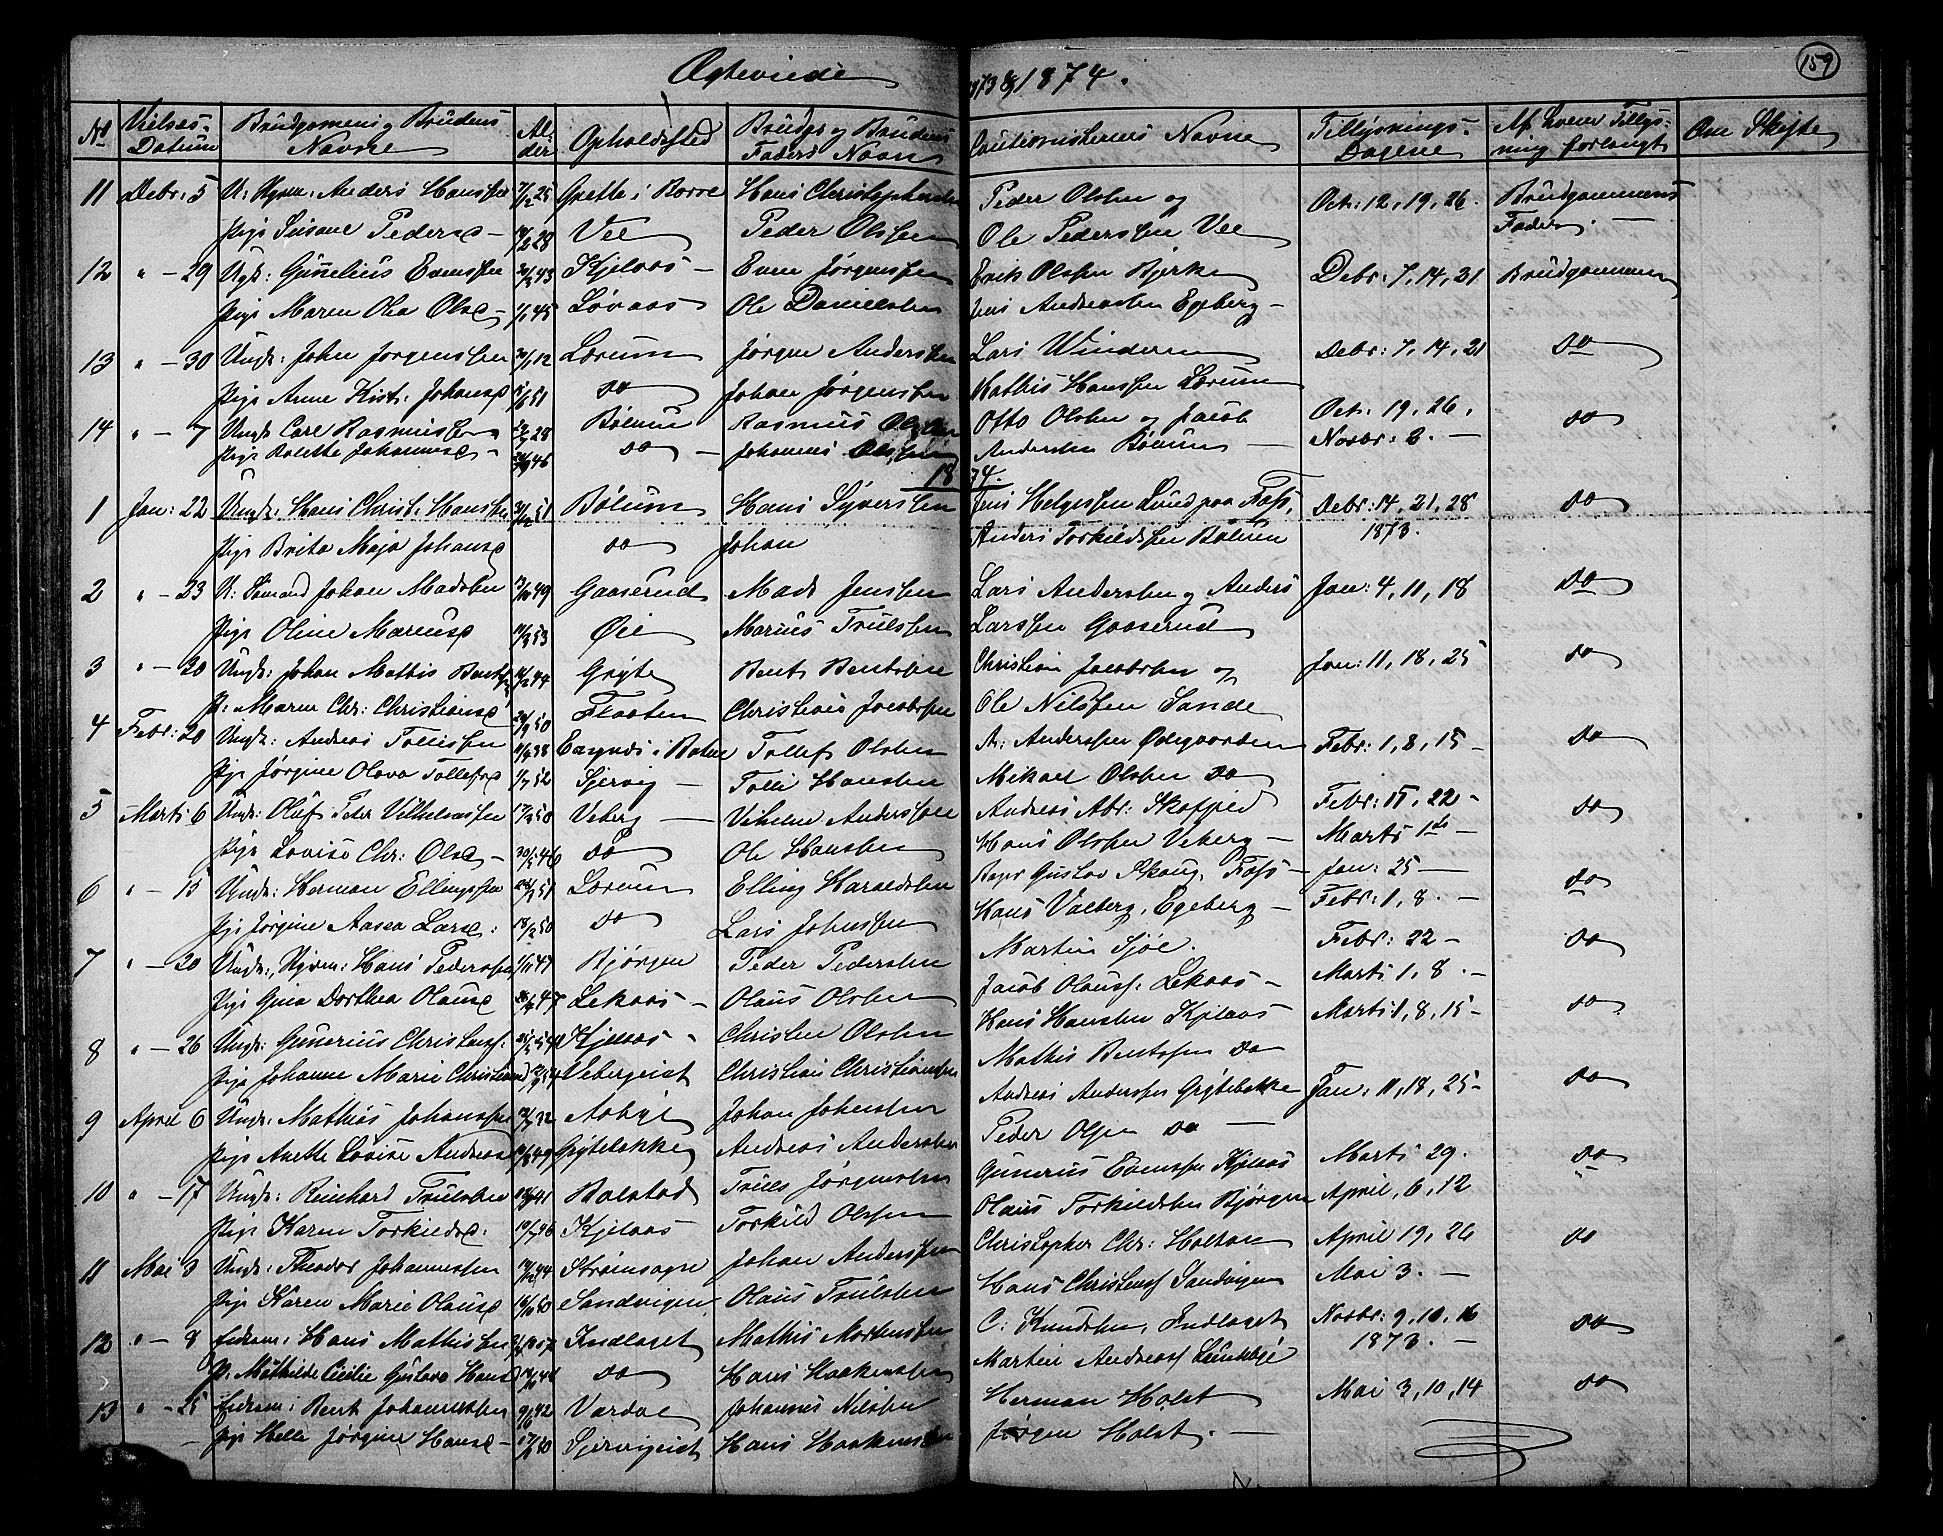 159
Ægteviede 1873 og 1874.
No Vielses-Datum Brudgommens og Brudens Navne Alder Opholdssted Brudgs og Brudens Faders Navn Cautionisternes Navne Tillysnings-Dagene Af hvem Tillysning forlangt Om Skifte
11 Debr: 5 Anders Hanssen 25 i Borre Hans Peder Olsen og Oct: 12, 19, 26. Brudgommens
Pige Susane Peders 28 Vee Peder Olssen Ole Pederssen Vee Fader.
12 " - 29 Ungk: Evenssen 43 Kjelaas Even Jørgenssen Erik Olssen Bjerke Debr: 7, 14, 21 Brudgommen
Pige Maren Olea Ols 1/1 45 Løvaas Ole Danielsen Andreassen Egeberg
13 " - 30 Ungk: Johan Jørgenssen Lørum Jørgen Anderssen Lars Winderen Debr: 7, 14, 21 do
Pige Anne Kist: Johans 51 do Johan Jørgenssen Mathis Hanssen Lørum
14 " - 7 Ungk: Carl Rasmussen 28 Bølum Rasmus Otto Olsen og Jacob Oct: 19, 26. do
Pige Johannes 46 do Johannes Olssen Anderssen Bølum Novbr: 2.
1874.
1 Jan: 22 Ungk: Hans Christ: Hanssen 51 Bølum Hans Syverssen Jens Helgessen Lund paa Foss, Debr: 14, 21, 28 do
Pige Brita Maja Johans do Johan Anders Torkildssen Bølum 1873.
2 " - 23 U: Sømand Johan Madssen 49 Gaaserud Mads Jenssen Lars Anderssen og Anders Jan: 4, 11, 18 do
Pige Oline Marius 53 Øie Marius Trulssen Larssen Gaaserud
3 " - 20 Ungk: Johan Mathis Bents 44 Gryte Bent Bentssen Christian Jacobsen og Jan: 11, 18, 25 do
P. Maren Chr: Christians 50 Flaaten Christian Jacobssen Ole Nilssen Sande
4 Febr: 20 Ungk: Andreas Tollissen 38 i Botne Tollef Olssen A: Anderssen Ødegaarden Febr: 1, 8, 15 do
Pige Jørgine Olava Tollefs 52 Sjervig Tolli Hanssen Mikael Olssen do
5 Marts 6 Ungk: Oluf Peter Vilhelmssen 50 Veberg Vilhelm Anderssen Andreas Abr: Febr: 15, 22 do
Pige Lovise Chr: Ols 46 do Ole Hanssen Hans Olssen Veberg Marts 1
6 " - 15 Ungk: Herman Ellingssen 51 Lørum Elling Haraldsen Gustav Skaug, Foss Jan: 25 do
Pige Jørgine Aasea Lars 50 do Lars Johnssen Hans Valberg, Egeberg Febr: 1, 8.
7 " - 20 Ungk: Hans Pederssen 47 Bjørgen Peder Pederssen Martin Sjøe. Febr: 22 do
Pige Gina Dorthea Olaus 47 Lekaas Olaus Olssen Jacob Olauss: Lekaas Marts 1, 8.
8 " - 26 Ungk: Gunerius Christens: Kjelaas Christen Olssen Hans Hanssen Kjelaas Marts 1, 8, 15 do
Pige Johanne Marie Christians 54 Christian Christianssen Mathis Bentssen do
9 April 6 Ungk: Mathias Johanssen 32 Aabye Johan Johnssen Andreas Anderssen Grytebakke Jan: 11, 18, 25 do
Pige Anette Lovise Andreas 49 Grytebakke Andreas Anderssen Peder Olssen do
10 " - 17 Ungk: Reinhard Trulssen 41 Bolstad Truls Jørgenssen Gunerius Evenssen Kjelaas Marts 29. do
Pige Karen Torkilds: 46 Kjelaas Torkild Olssen Olaus Torkildssen Bjørgen April, 6, 12
11 Mai 3 Ungk: Theodor Johannessen 44 Strømsagre Johan Anderssen Christopher Chr: Holtan April 19, 26 do
Pige Karen Marie Olaus 50 Sandvigen Olaus Trulssen Hans Christenss Sandvigen Mai 3.
12 " - 8 Enkem: Hans Mathissen Indlaget Mathis Mortenssen C. Knudssen, Indlaget Novbr: 9, 10, 16 do
P. Mathilde Cicilie Gustava Hans do Hans Haakenssen Martin Andreass 1873.
13 " - 25 Enkem: Bent Johannessen 42 Vardal Johannes Nilssen Herman Holst Mai 3, 10, 14 do
Pige Helle Jørgine Hans 50 Hans Haakenssen Jørgen Holst.